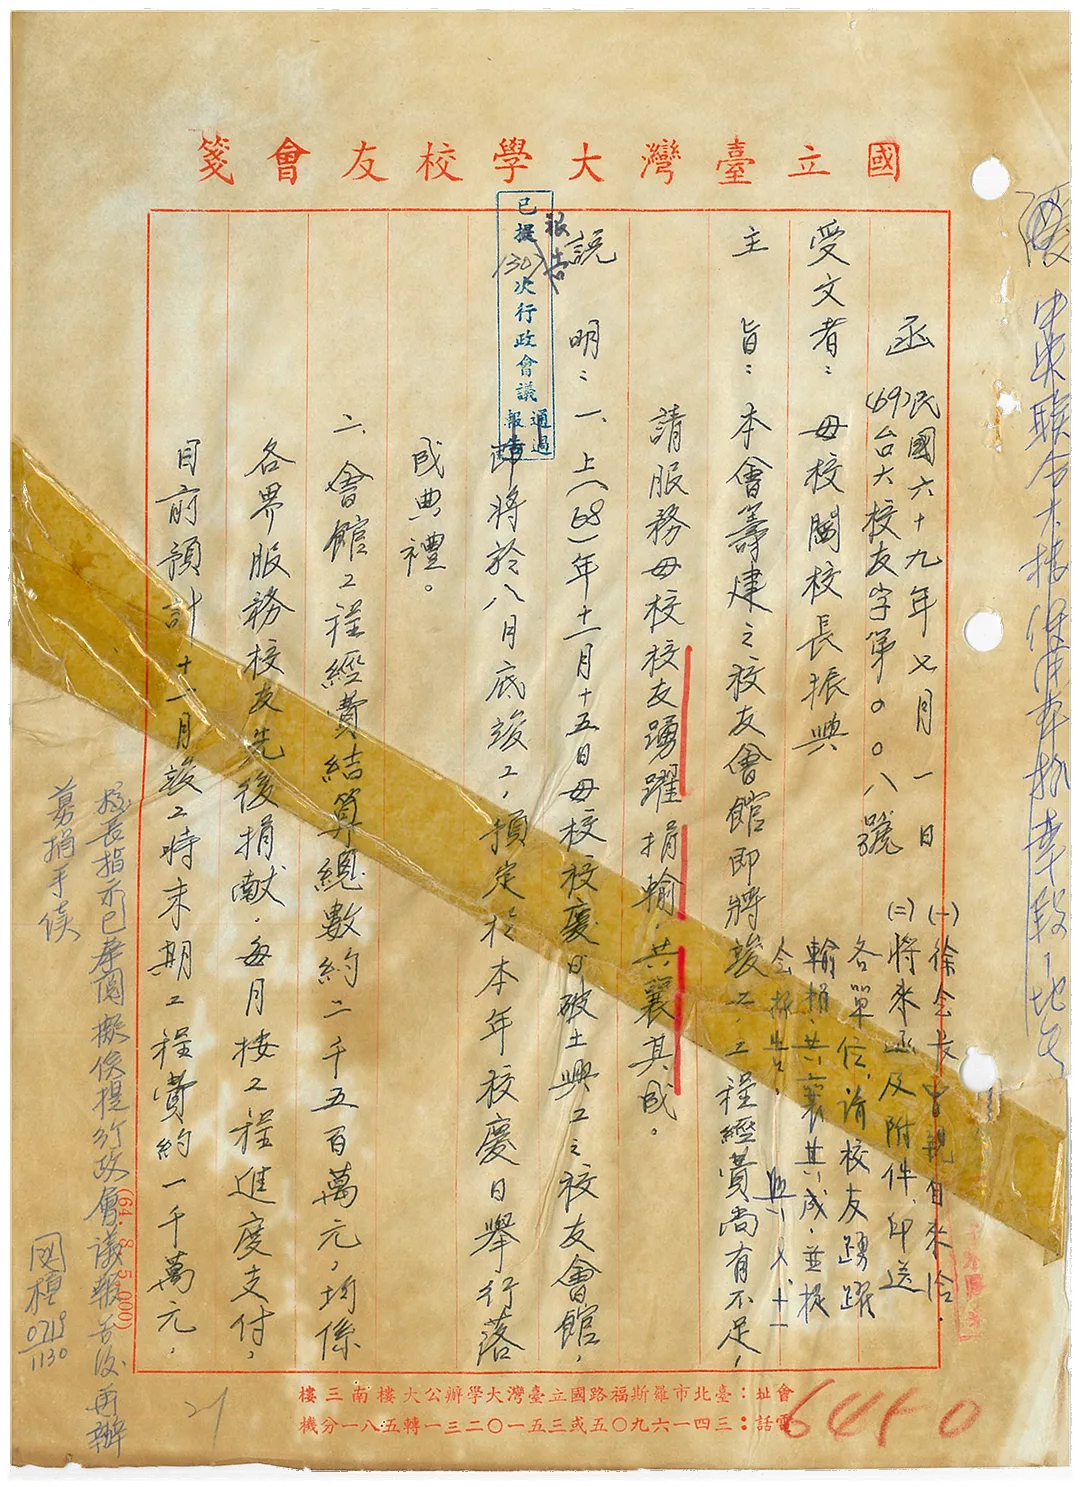 國立臺灣大學校友會箋
函
民國六十九年七月一日
(69)台大校友字第〇〇八號
受文者：母校閻校長振興
主旨：本會籌建之校友會館即將竣工，工程經費尚有不足，
請服務母校校友踴躍捐輸，共襄其成。
說明：一、上(68)年十一月十五日母校校慶日破土興工之校友會館，
即將於八月底竣工，預定於本年校慶日舉行落
成典禮。
二、會館工程經費結算總數約二千五百萬元，均係
各界服務校友先後捐献，每月按工程進度支付，
目前預計十一月竣工時末期工程費約一千萬元，
已提(130)次行政會議
報告
通過
報告
(一)徐會長親自來洽。
(二)將來函及附件，印送
各單位，請校友踴躍
輸捐共襄其成，並提
會報告。
興 八十一
校長指示已奉閱擬俟提行政會議報告後再辦
募捐手續
0719
1130
(64.8.5000)
會址：臺北市羅斯福路國立臺灣大學辦公大樓南三樓
電話：三四一六九〇五或三五一〇二三一轉五八一分機
6450